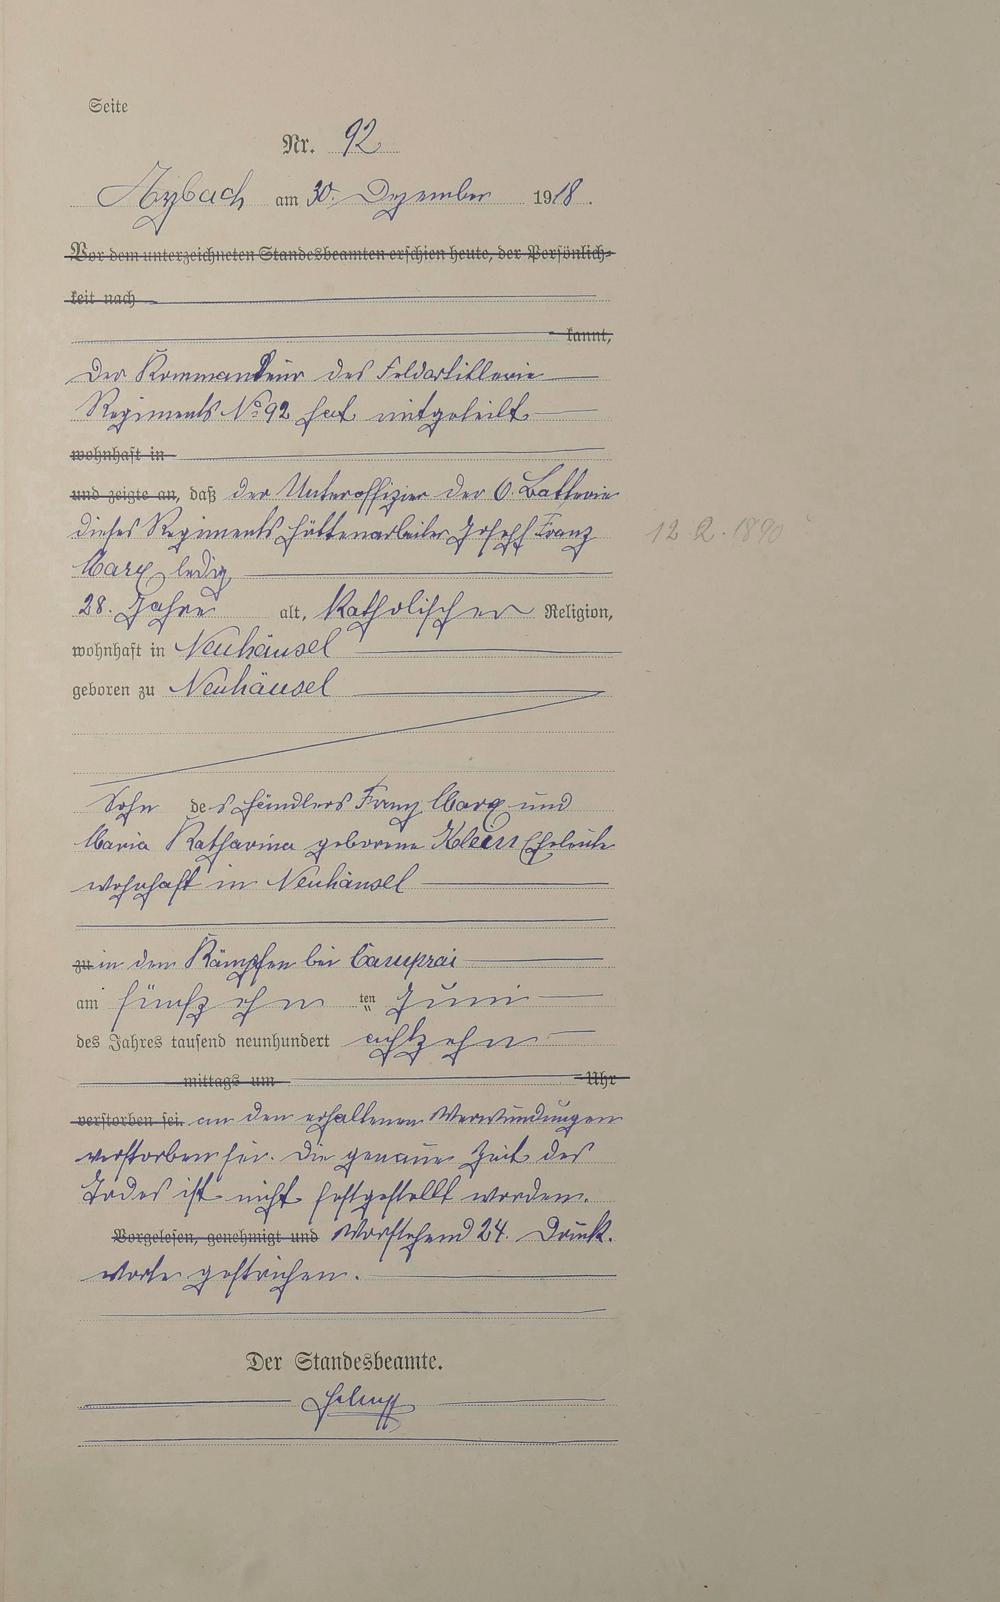 Seite
Nr. 92
am 30. Dezember 1918.
Vor dem unterzeichneten Standesbeamten erschien heute, der Persönlich-
keit nach
kannt,
Der Kommandeur des Feldartillerie
Regiments No 92 hat mitgeteilt
wohnhaft in
und zeigte an, daß der Unteroffizier der 6. Batterie
dieses Regiments Hüttenarbeiter Joseph Franz
12.2.1890
Marx, ledig
28. Jahre alt, katholischer Religion,
wohnhaft in Neuhäusel
geboren zu Neuhäusel
Sohn des Händlers Franz Marx und
Maria Katharina geborene Klein Eheleute
wohnhaft in Neuhäusel
zu in den Kämpfen bei Camprai
am fünfzehn ten Juni
des Jahres tausend neunhundert achtzehn
mittags um Uhr
verstorben sei. an den erhaltenen Verwundungen
verstorben sei. Die genaue Zeit des
Todes ist nicht festgestellt worden.
Vorgelesen, genehmigt und Vorstehend 24. Druck.
worte gestrichen.
Der Standesbeamte.